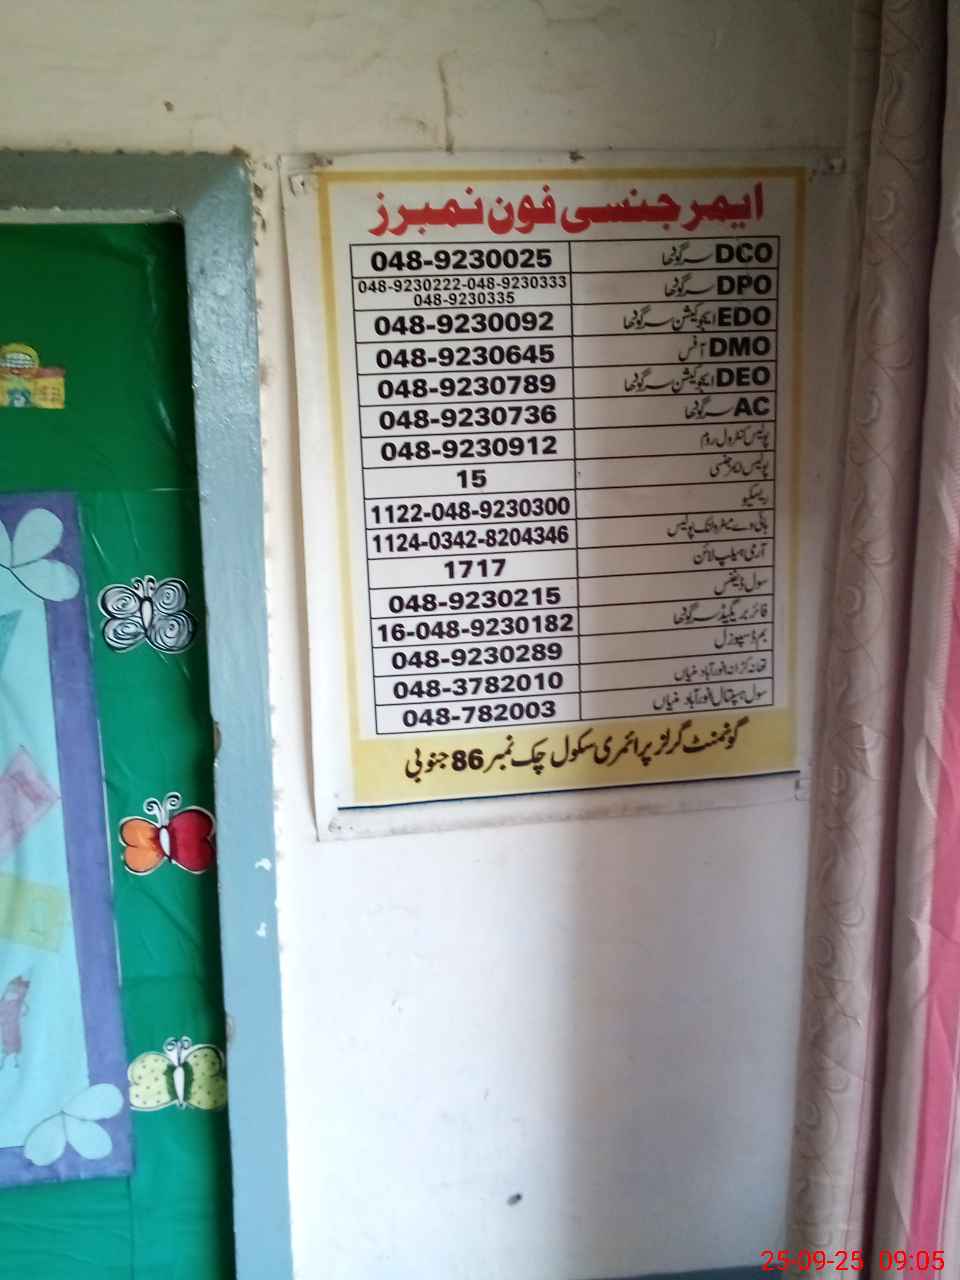 ایمرجنسی فون نمبرز
DCO سرگودھا 048-9230025
DPO سرگودھا 048-9230222-048-9230333
048-9230335
EDO ایجوکیشن سرگودھا 048-9230092
DMO آفس 048-9230645
DEO ایجوکیشن سرگودھا 048-9230789
AC سرگودھا 048-9230736
پولیس کنٹرول روم 048-9230912
پولیس ایمرجنسی 15
ریسکیو 1122-048-9230300
ہائی وے پٹرولنگ پولیس 1124-0342-8204346
آرمی ہیلپ لائن 1717
سول ڈیفنس 048-9230215
فائر بریگیڈ سرگودھا 16-048-9230182
بم ڈسپوزل 048-9230289
تھانہ 048-3782010
سول ہسپتال 048-782003
گورنمنٹ گرلز پرائمری سکول چک نمبر 86 جنوبی
25-09-25 09:05